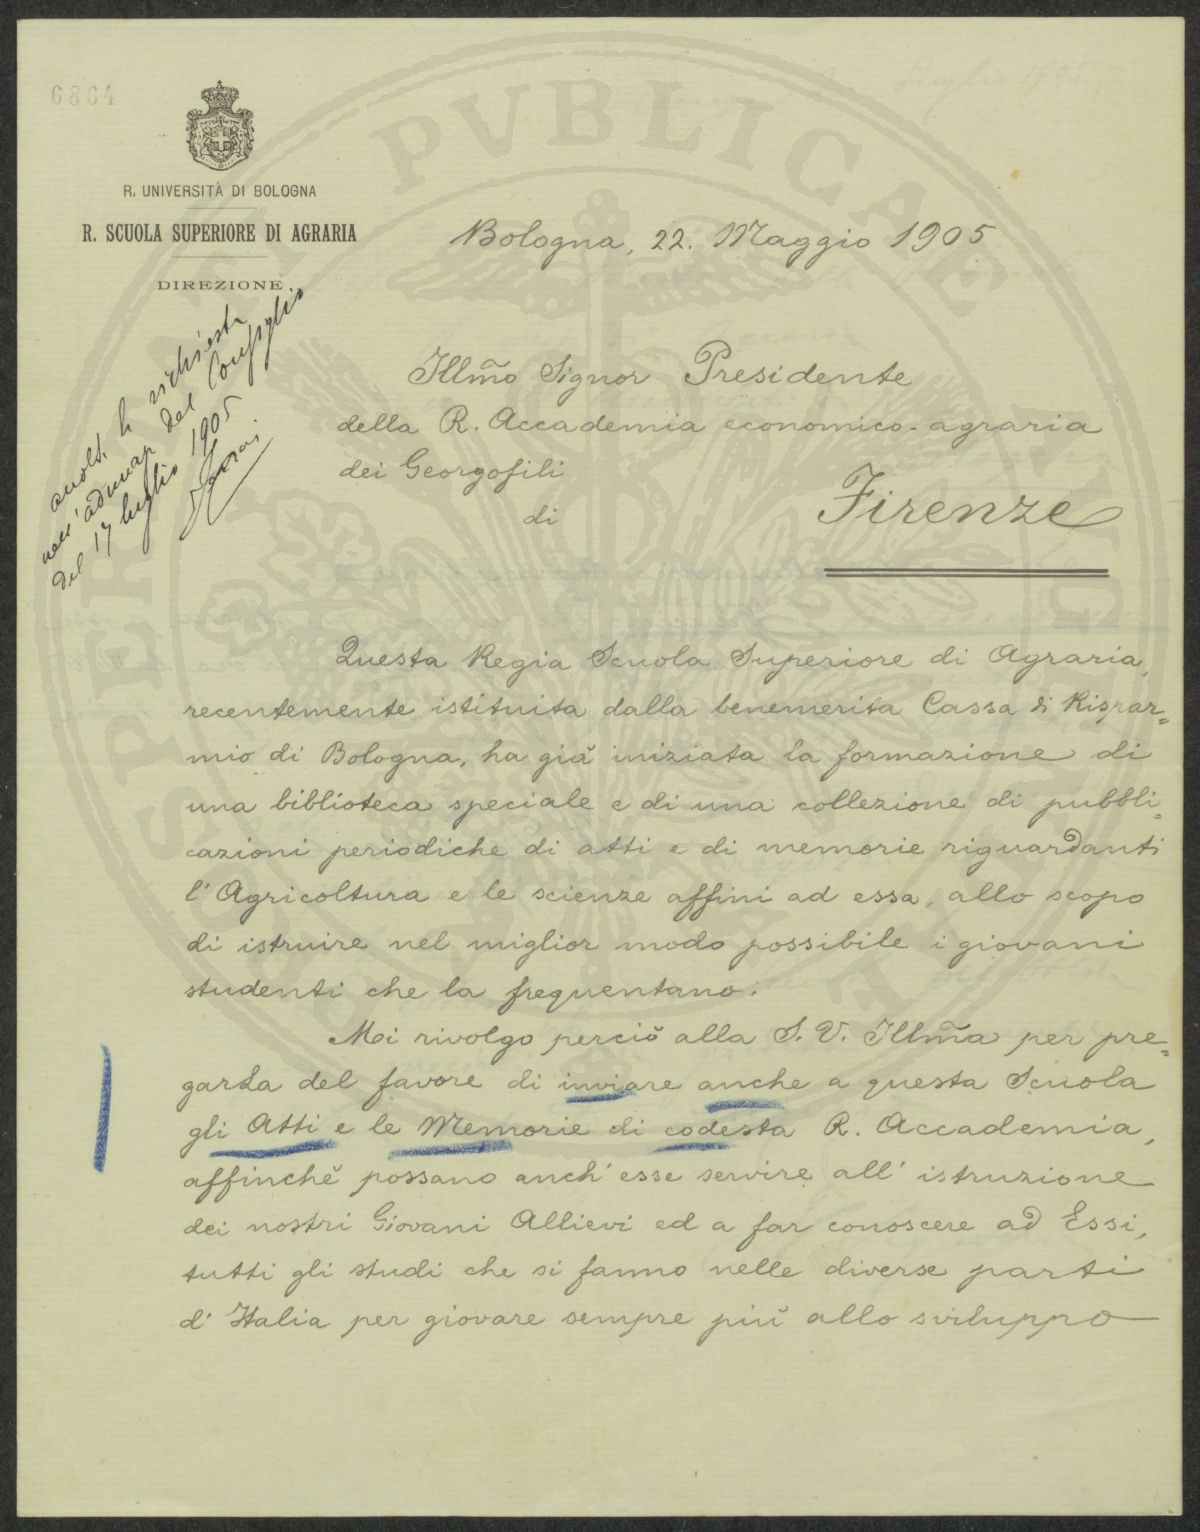 6864
R. UNIVERSITÀ DI BOLOGNA
R. SCUOLA SUPERIORE DI AGRARIA
DIREZIONE
Bologna, 22. Maggio 1905
richiesta
nell'adunaz del Consiglio
del 17 luglio 1905
Illm̃o Signor Presidente
della R. Accademia economico-agraria
dei Georgofili
di Firenze
Questa Regia Scuola Superiore di Agraria,
recentemente istituita dalla benemerita Cassa di Rispar=
mio di Bologna, ha già iniziata la formazione di
una biblioteca speciale e di una collezione di pubbli=
cazioni periodiche di atti e di memorie riguardanti
l'Agricoltura e le scienze affini ad essa, allo scopo
di istruire nel miglior modo possibile i giovani
studenti che la frequentano.
Mi rivolgo perciò alla S. V. Illm̃a per pre=
garla del favore di inviare anche a questa Scuola
gli Atti e le Memorie di codesta R. Accademia,
affinchè possano anch'esse servire all'istruzione
dei nostri Giovani Allievi ed a far conoscere ad Essi,
tutti gli studi che si fanno nelle diverse parti
d'Italia per giovare sempre più allo sviluppo
PVBLICAE